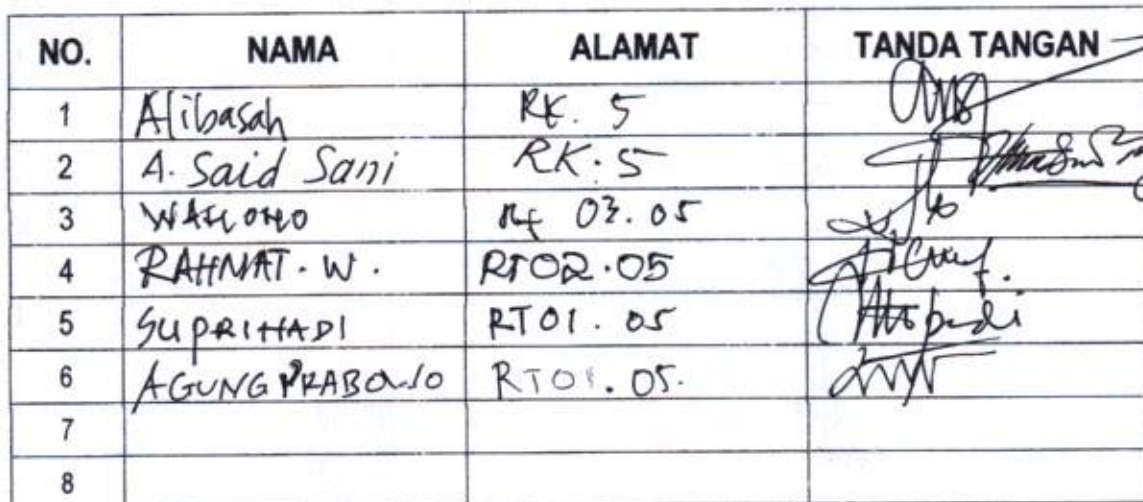 NO. NAMA ALAMAT TANDA TANGAN
1 Alibasah RK. 5
2 A. Said Sani RK. 5
3 WAHONO Rt 03. 05
4 RAHMAT. W. RT02.05
5 SUPRIHADI RT01. 05
6 AGUNG PRABOWO RT01. 05.
7
8